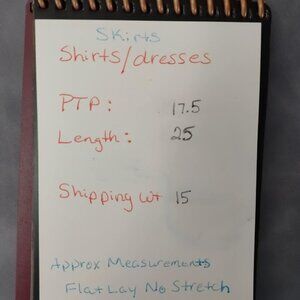 Skirts
Shirts/dresses
PTP: 17.5
Length: 25
Shipping wt 15
Approx Measurements
Flat Lay No Stretch